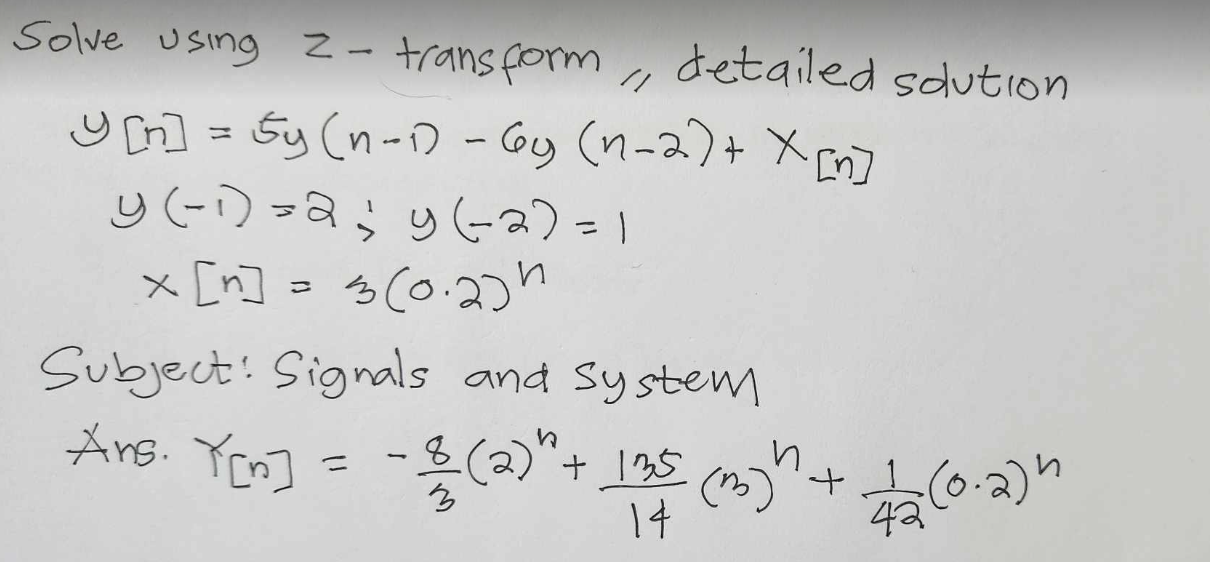 Solve using z-transform,, detailed solution
y[n] = 5y(n-1) - 6y(n-2) + x[n]
y(-1) = 2; y(-2) = 1
x[n] = 3(0.2)ⁿ
Subject: Signals and system
Ans. Y[n] = -8/3(2)ⁿ + 135/14(3)ⁿ + 1/42(0.2)ⁿ